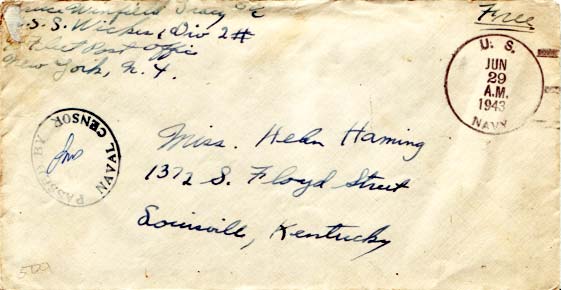 Winfield Tracy
U.S.S. Wilkes, Div 2#
Fleet Post Office
New York, N.Y.
Free
U. S.
JUN
29
A.M.
1943
NAVY
PASSED BY
NAVAL CENSOR
Miss. Helen Haming
1372 S. Floyd Street
Louisville, Kentucky
500